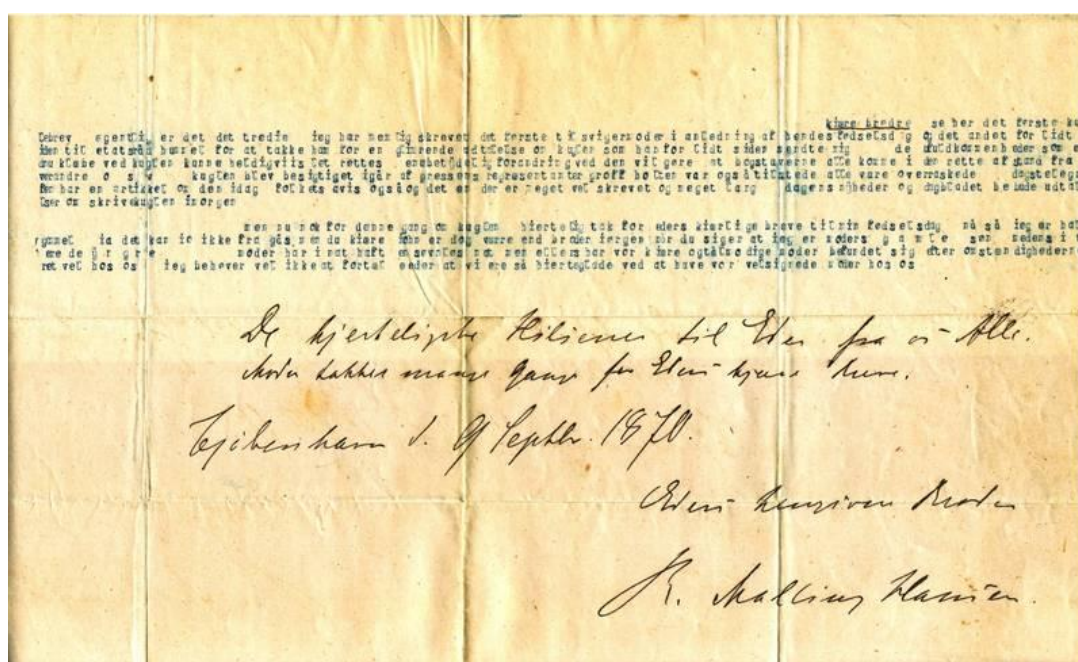 kiære brødre se her det første ku
brev egentlig er det det tredie ieg har nemlig skrevet det første til svigermoder i anledning af hendes fødselsdag og det andet for lidt
siden til etatsråd hummel for at takke ham for en glimrende udtalelse om kuglen som han for lidt siden sendte mig de ufuldkommenheder som e
ved kuglen kunne heldigviis let rettes en ubetydelig forandring ved den vil gøre at bogstaverne alle komme i den rette afstand fra
verandre o s v kuglen blev besigtiget igår af pressens representanter groff bolten var også tilstede alle vare overraskede dagstelegr
fen har en artikel om den idag folkets avis også og det en der er meget vel skrevet og meget lang dagens nyheder og dagbladet bebude udtal
elser om skrivekuglen imorgen
men nu nok for denne gang om kuglen hiertelig tak for eders kiærlige breve til min fødselsdag nå så ieg er
gammel ia det kan io ikke fra gås men du kiære er dog værre end broder iørgen når du siger at ieg er moders g a m l e søn medens
ere de y n g r e moder har i nat haft en søvnløs nat men ellers har vor kiære og tålmodige moder befundet sig efter omstændighederne
ret vel hos os ieg behøver vel ikke at fortæl eder at vi ere så hierteglade ved at have vor velsignede moder hos os
De hjerteligste Hilsener til Eder fra os Alle.
Moder takker mange Gange for Eders kjære Breve.
Kjøbenhavn d. 9 Septbr. 1870.
Eders hengivne Broder
R. Malling Hansen.